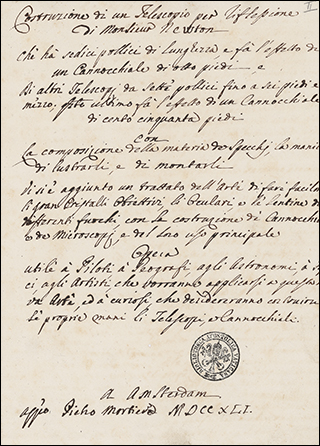 II
Costruzione di un Telescopio per Riflessione
di Monsieur Newton
Che hà sedici pollici di lunghezza e fà l'effetto di
un Cannocchiale di otto piedi e
Di altri Telescopj da Sette pollici fino a sei piedi e
mezzo, quest'ultimo fà l'effetto di un Cannocchiale
di cento cinquanta piedi
Con
La composizione della materia de Specchj, la maniera
di lustrarli e di montarli
Vi si è aggiunto un trattato dell'Arte di fare facilmente
li gran Cristalli Obiettivi, li Oculari, e
differenti fuochi con la costruzione di Cannocchiali
e de Microscopj e del loro uso principale
Opera
utile à Piloti à Geografi, agli Astronomi à
ci agli Artisti che vorranno applicarsi a questa
Arte ed à curiosi, che desidereranno costruire
le proprie mani li Telescopj, e Cannocchiali.
BIBLIOTHECA APOSTOLICA VATICANA
A Amsterdam
appo Pietro Mortier MDCCXLI.